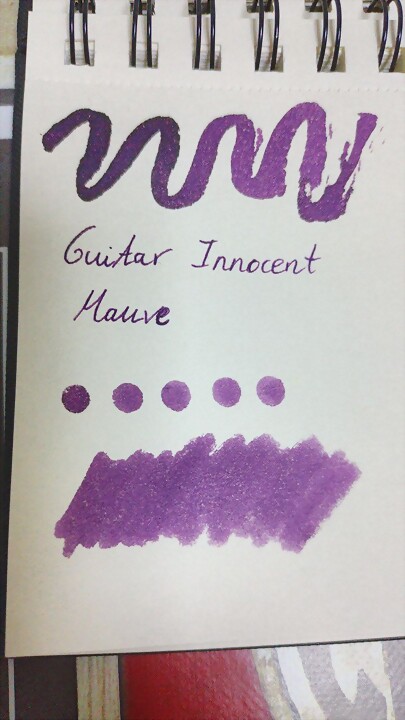 Guitar Innocent
Mauve